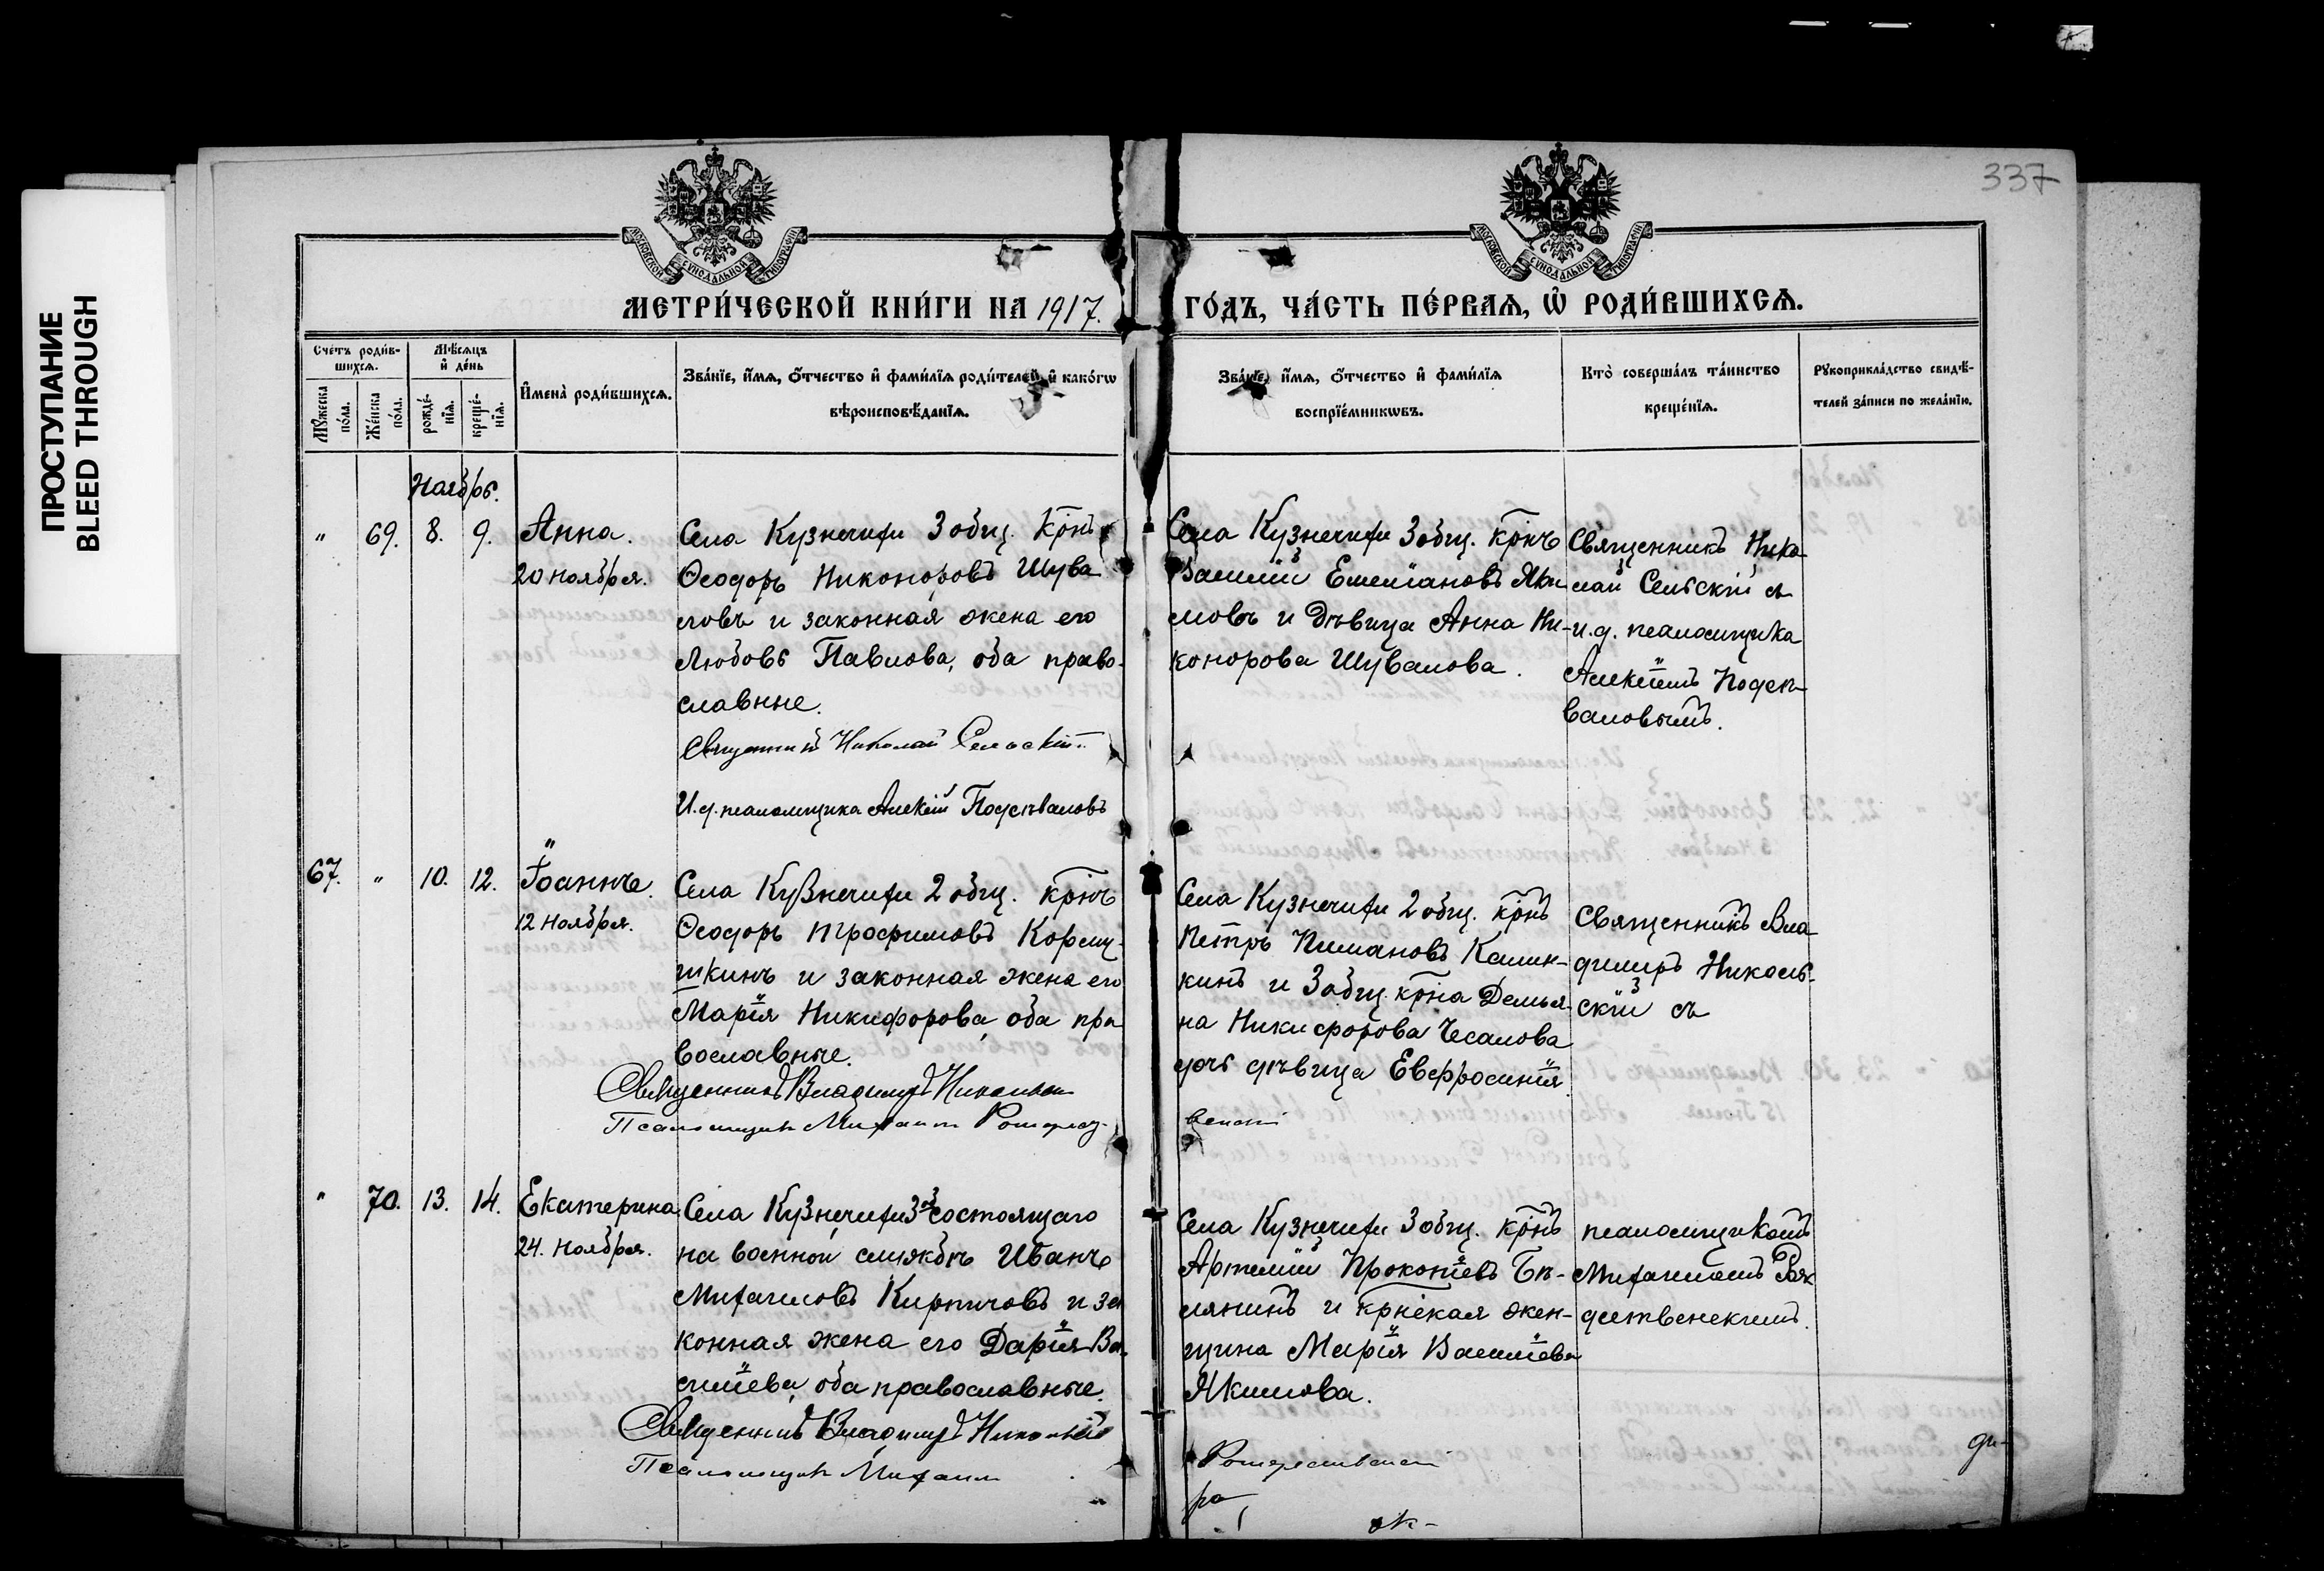 ПРОСТУПАНИЕ
BLEED THROUGH
337
МОСКОВСКОЙ СѴНОДАЛЬНОЙ ТИПОГРАФІИ
МОСКОВСКОЙ СѴНОДАЛЬНОЙ ТИПОГРАФІИ
МЕТРИ́ЧЕСКОЙ КНИ́ГИ НА 1917. ГО́ДЪ, ЧА́СТЬ ПЕ́РВАЯ, Ѡ҆ РОДИ́ВШИХСЯ.
Сче́тъ роди́в-
шихся.
Мѣ́сяцъ
и҆ де́нь
Мꙋ́жеска
по́ла.
Же́нска
по́ла.
рожде́-
нїя.
креще́-
нїя.
И҆мена̀ роди́вшихся.
Зва́нїе, и҆́мя, ѻ҆́тчество и҆ фами́лїя роди́телей, и҆ како́гѡ
вѣроисповѣ́данїя.
Зва́нїе, и҆́мя, ѻ҆́тчество и҆ фами́лїя
воспрїе́мникѡвъ.
Кто̀ соверша́лъ та́инство
креще́нїя.
Рꙋкоприкла́дство свидѣ́-
телей за́писи по жела́нїю.
Ноябрь.
" 69. 8. 9.
Анна.
20 ноября.
Села Кузнечихи 3 общ. крнъ
Ѳеодоръ Никоноровъ Шува
ловъ и законная жена его
Любовь Павлова, оба право-
славные.
Священникъ Николай Сельскій
И.д. псаломщика Алексій Подсѣваловъ
Села Кузнечихи 3 общ. крнъ
Василій Емеліановъ Яки
мовъ и дѣвица Анна Ни-
конорова Шувалова.
Священникъ Нико-
лай Сельскій съ
и.д. псаломщика
Алексіемъ Подсѣ-
валовымъ.
67. " 10. 12.
Іоаннъ.
12 ноября.
Села Кузнечихи 2 общ. крнъ
Ѳеодоръ Трофимовъ Корму-
шкинъ и законная жена его
Марія Никифорова, оба пра
вославные.
Священникъ Владимиръ Никольскій
Псаломщикъ Михаилъ Рождест-
Села Кузнечихи 2 общ. крнъ
Петръ Пимановъ Калин-
кинъ и 3 общ. крна Демья-
на Никифорова Чесалова
дочь дѣвица Евфросинія.
венскій
Священникъ Вла
димиръ Николь-
скій съ
" 70. 13. 14.
Екатерина.
24. ноября.
Села Кузнечихи 3 состоящаго
на военной службѣ Иванъ
Михаиловъ Кирпичовъ и за
конная жена его Дарія Ва-
сильева, оба православные.
Священникъ Владимиръ Никольскій
Псаломщикъ Михаилъ
Села Кузнечихи 3 общ. крнъ
Артемій Прокопіевъ Бѣ-
лянинъ и крнская жен-
щина Марія Васильева
Якимова.
Рождественскій
ра
псаломщикомъ
Михаиломъ Рож
дественскимъ.
ди-